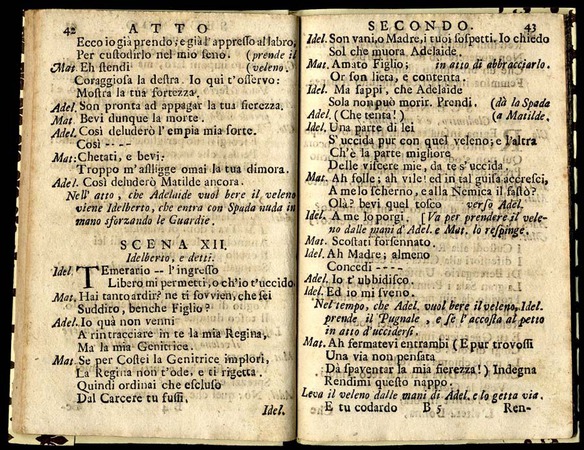 42 ATTO
Ecco io già prendo; e già l'appresso al labro,
Per custodirlo nel mio seno. (prende il
Mat. Eh stendi (veleno.
Coraggiosa la destra. Io qui t'osservo:
Mostra la tua fortezza.
Adel. Son pronta ad appagar la tua fierezza.
Mat. Bevi dunque la morte.
Adel. Così deluderò l'empia mia sorte.
Così ----
Mat: Chetati, e bevi:
Troppo m'affligge omai la tua dimora.
Adel. Così deluderò Matilde ancora.
Nell' atto, che Adelaide vuol bere il veleno
viene Idelberto, che entra con Spada nuda in
mano sforzando le Guardie.
SCENA XII.
Idelberto, e detti.
Idel. TEmerario -- l'ingresso
Libero mi permetti, o ch'io t'uccido.
Mat. Hai tanto ardir? ne ti sovvien, che sei
Suddito, benche Figlio?
Adel. Io quà non venni
A rintracciare in te la mia Regina,
Ma la mia Genitrice.
Mat. Se per Costei la Genitrice implori,
La Regina non t'ode, e ti rigetta.
Quindi ordinai che escluso
Dal Carcere tu fussi.
Idel.
SECONDO. 43
Idel. Son vani, o Madre, i tuoi sospetti. Io chiedo
Sol che muora Adelaide.
Mat. Amato Figlio; in atto di abbracciarlo.
Or son lieta, e contenta.
Idel. Ma sappi, che Adelaide
Sola non può morir. Prendi. (dà la Spada
Adel. (Che tenta!) (a Matilde.
Idel. Una parte di lei
S'uccida pur con quel veleno; e l'altra
Ch'è la parte migliore
Delle viscere mie, da te s'uccida.
Mat. Ah folle; ah vile! ed in tal guisa accresci,
A me lo scherno, e alla Nemica il fasto?
Olà? bevi quel tosco verso Adel.
Idel. A me lo porgi. [Va per prendere il vele-
no dalle mani d'Adel. e Mat. lo respinge.
Mat. Scostati forsennato.
Idel. Ah Madre; almeno
Concedi ----
Adel. Io t'ubbidisco.
Idel. Ed io mi sveno.
Nel tempo, che Adel. vuol bere il veleno, Idel.
prende il Pugnale, e se l'accosta al petto
in atto d'uccidersi.
Mat. Ah fermatevi entrambi (E pur trovossi
Una via non pensata
Dà spaventar la mia fierezza!) Indegna
Rendimi questo nappo.
Leva il veleno dalle mani di Adel. e lo getta via.
E tu codardo B 5 Ren-